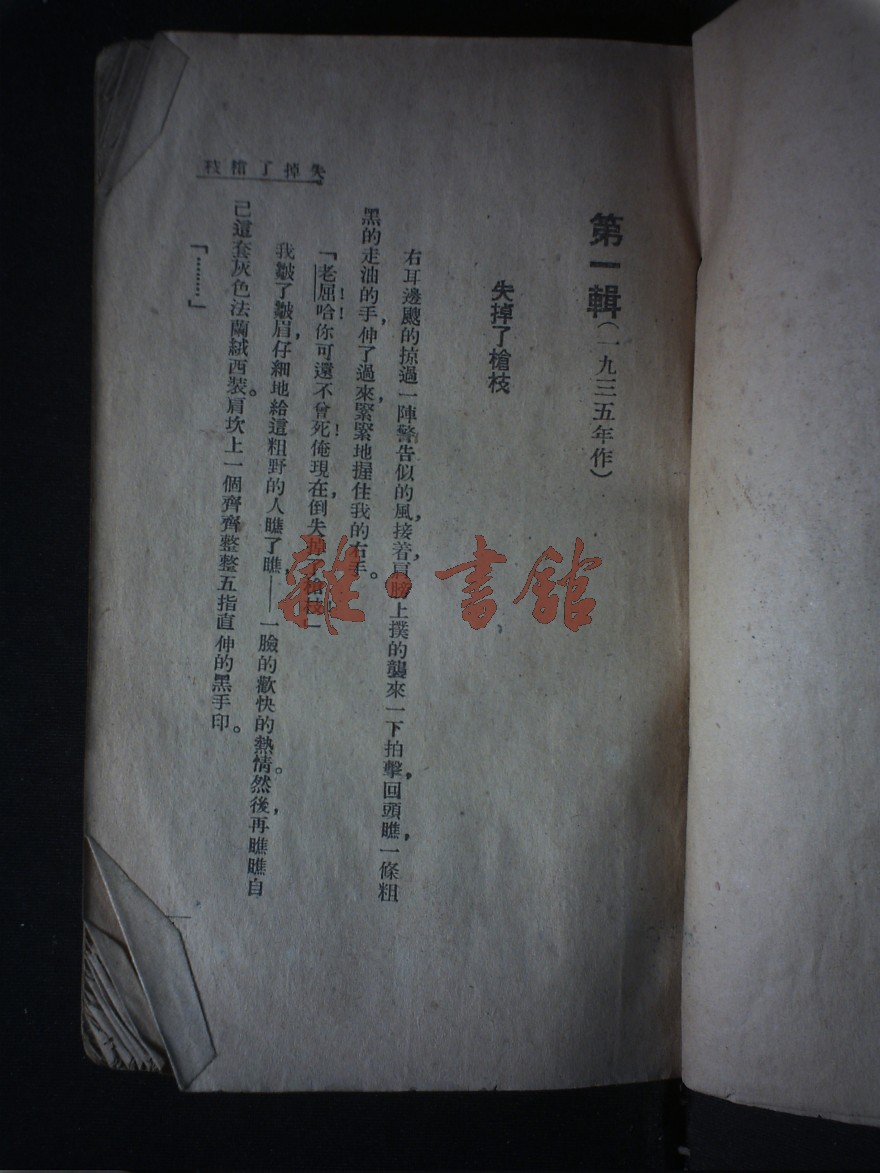 第一輯（一九三五年作）
失掉了槍枝
右耳邊颼的掠過一陣警告似的風，接着，肩膀上撲的襲來一下拍擊，回頭瞧，一條粗
黑的走油的手，伸了過來，緊緊地握住我的右手。
「老屈！哈！你可還不曾死！俺現在，倒失掉了槍枝！」
我皺了皺眉，仔細地給這粗野的人瞧了瞧，——一臉的歡快的熱情。然後，再瞧瞧自
己這套灰色法蘭絨西裝。肩坎上一個齊齊整整五指直伸的黑手印。
「………」
失掉了槍枝
一
雜·書館